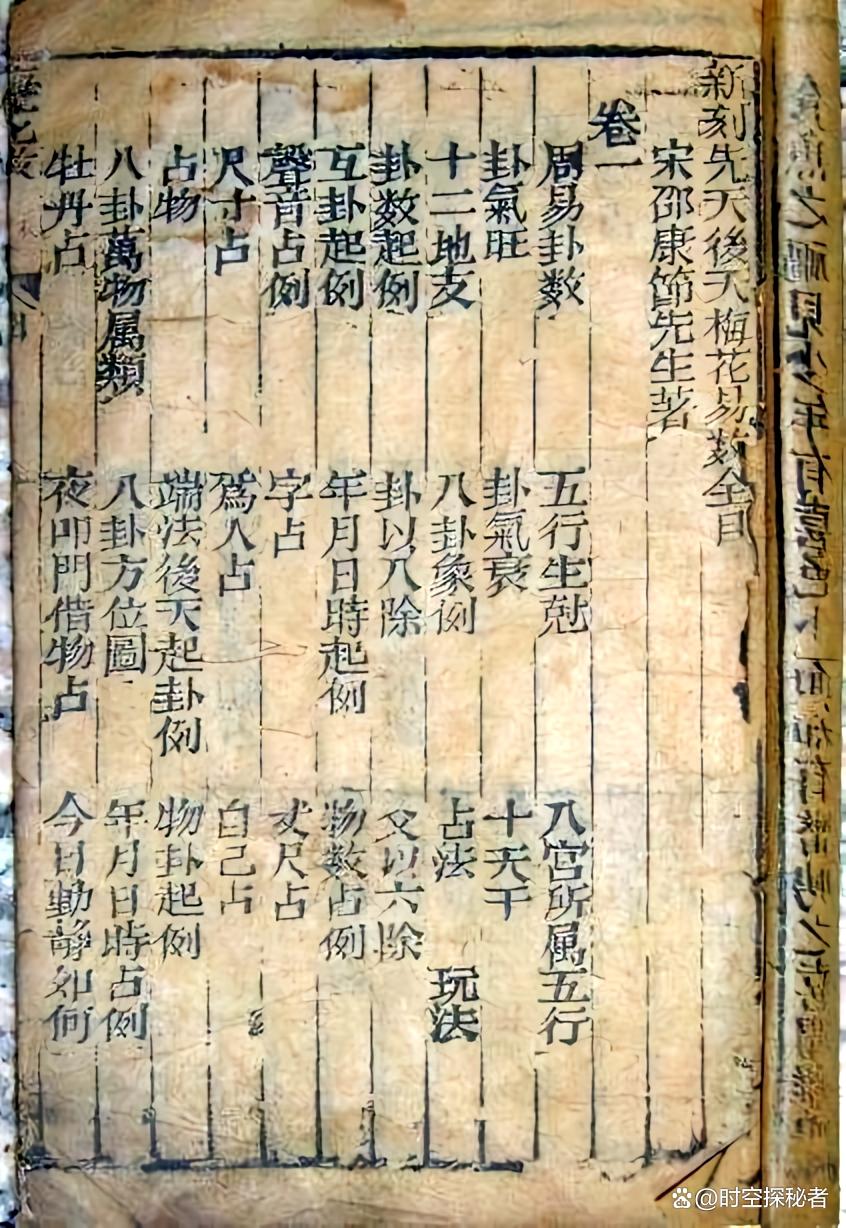 新刻先天後天梅花易数全目
宋邵康節先生著
卷一
周易卦数 五行生尅 八宮所属五行
卦氣旺 卦氣衰 十天干
十二地支 八卦象例 占法 玩法
卦数起例 卦以八除 爻以六除
互卦起例 年月日時起例 物数占例
聲音占例 字占 丈尺占
尺寸占 爲人占 自己占
占物 端法後天起卦例 物卦起例
八卦萬物属類 八卦方位圖 年月日時占例
牡丹占 夜叩門借物占 今日動靜如何
@时空探秘者